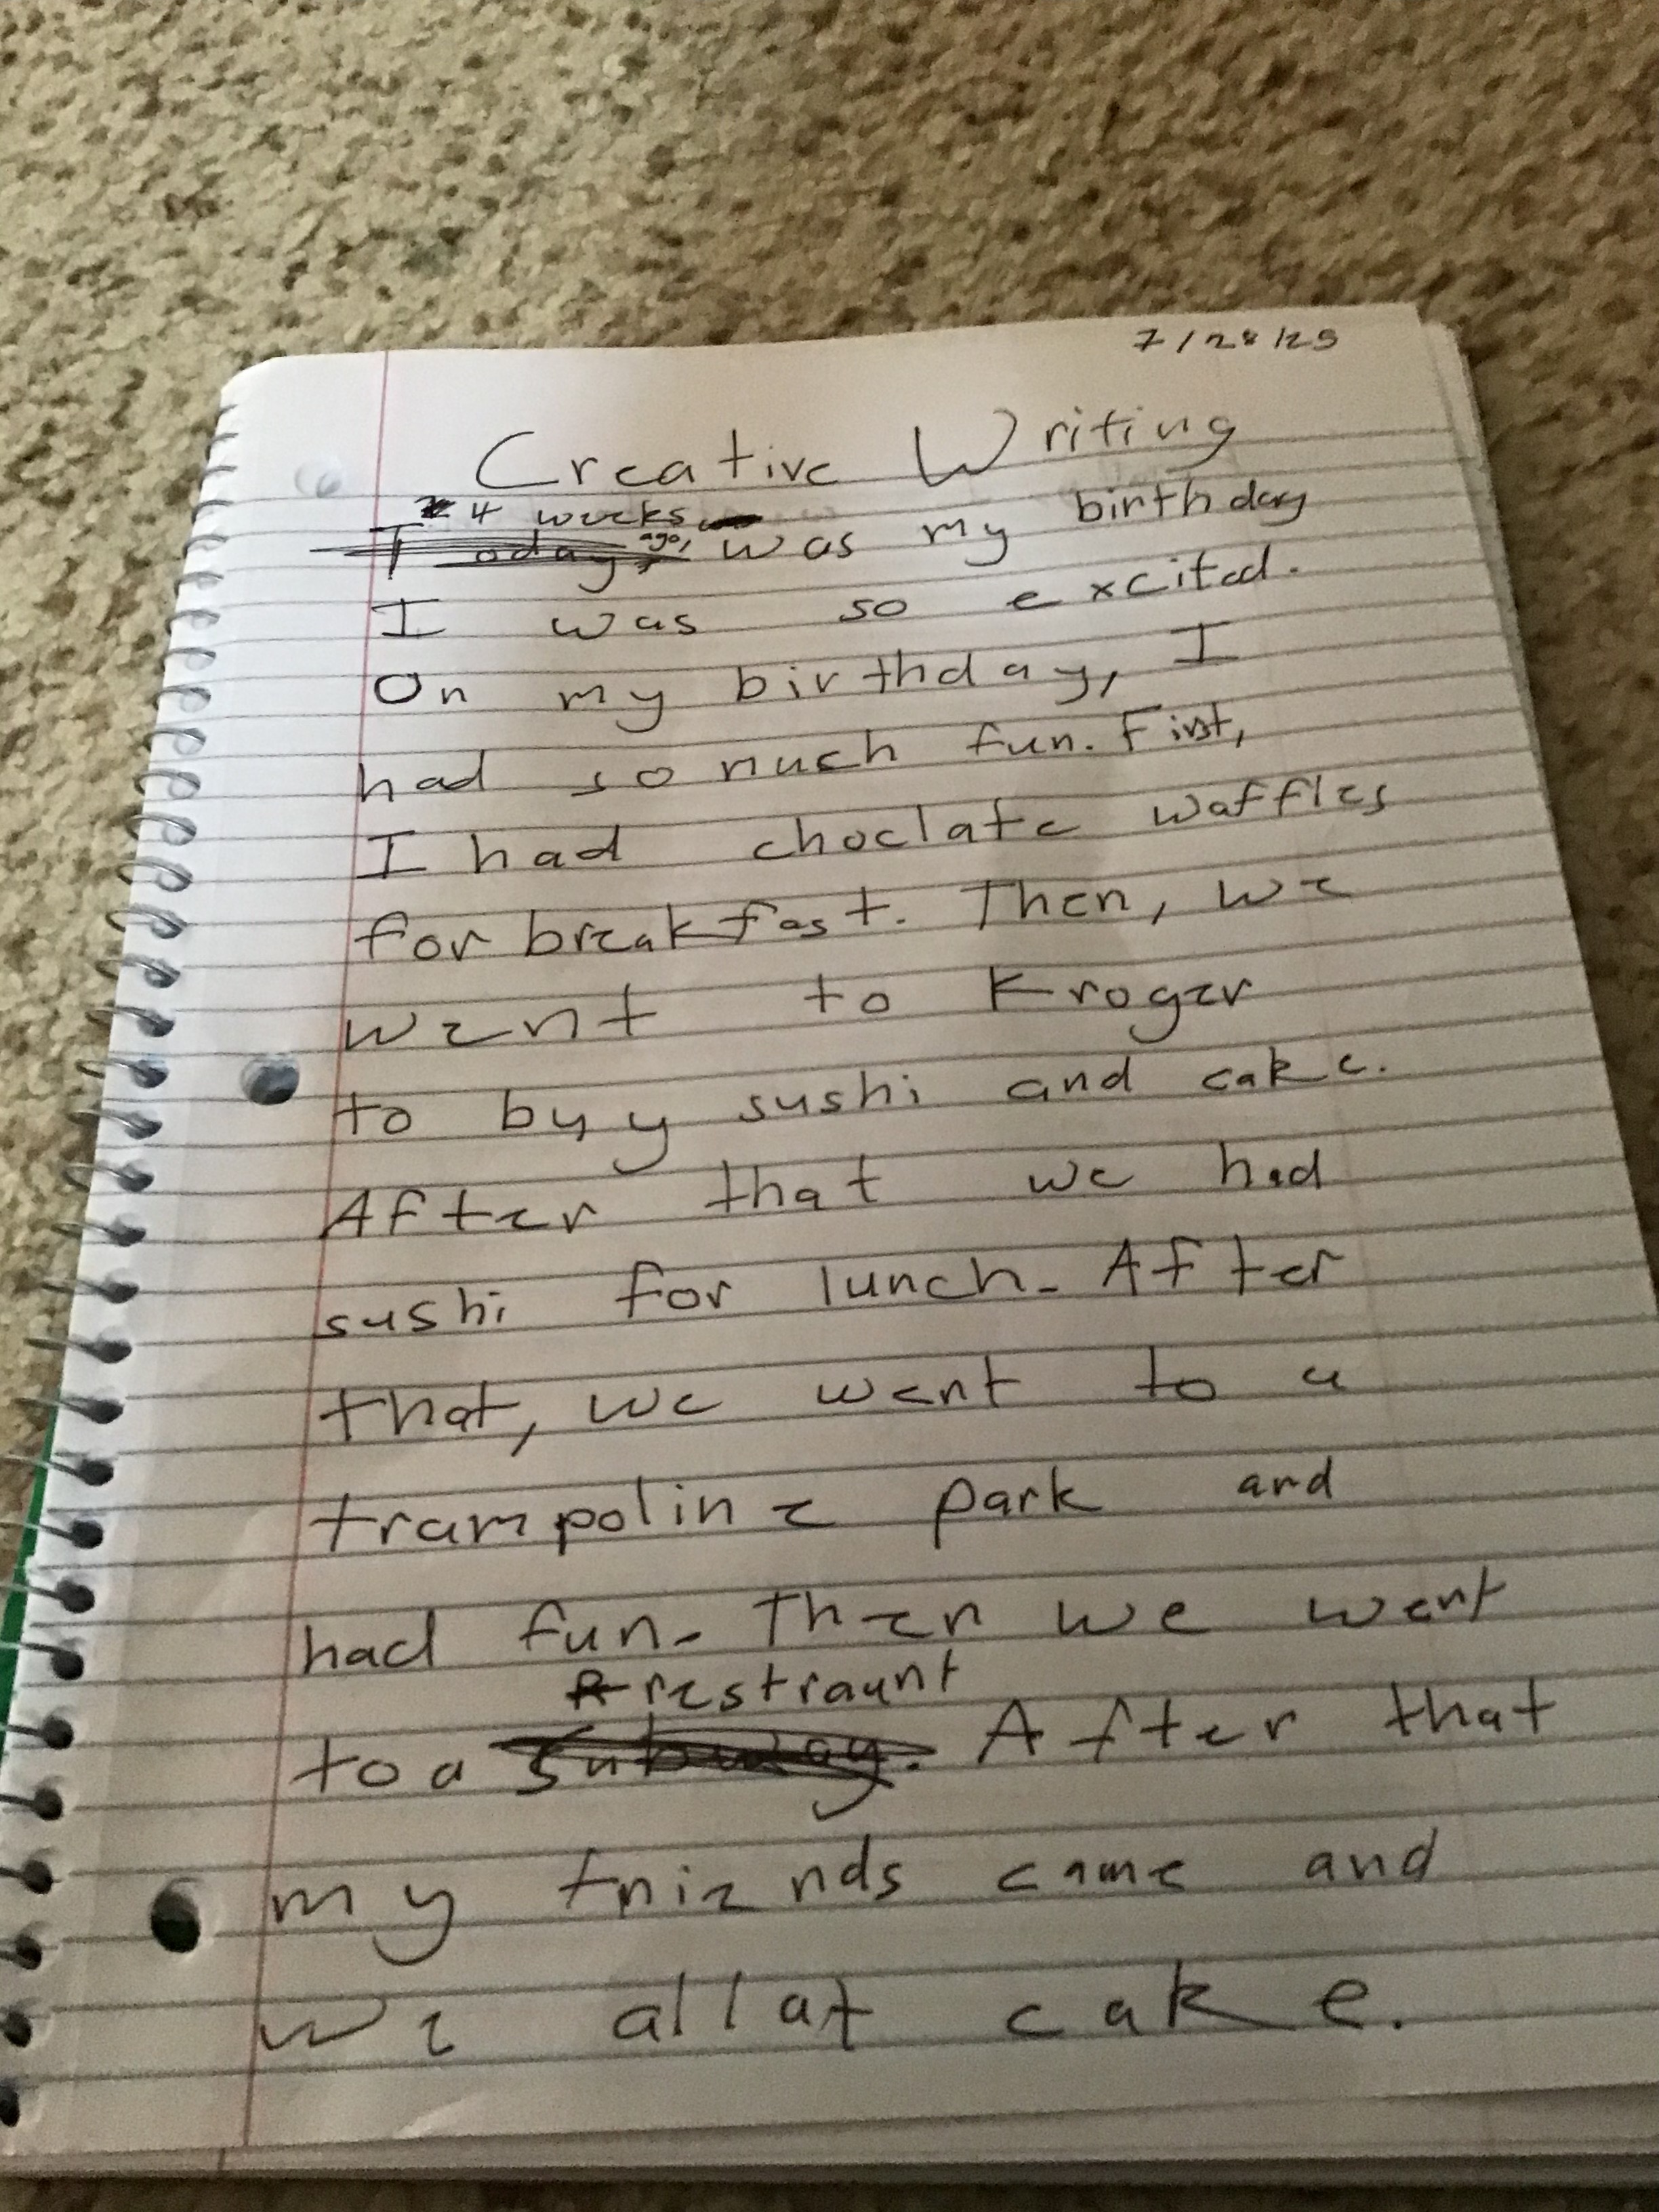 7/28/25
Creative Writing
4 weeks
ago, was my birthday
I was so excited.
On my birthday, I
had so much fun. First,
I had choclate waffles
for breakfast. Then, we
went to Kroger
to buy sushi and cake.
After that we had
sushi for lunch. After
that, we went to a
trampoline park and
had fun. Then we went
restraunt
to a Subway. After that
my friends came and
we all at cake.